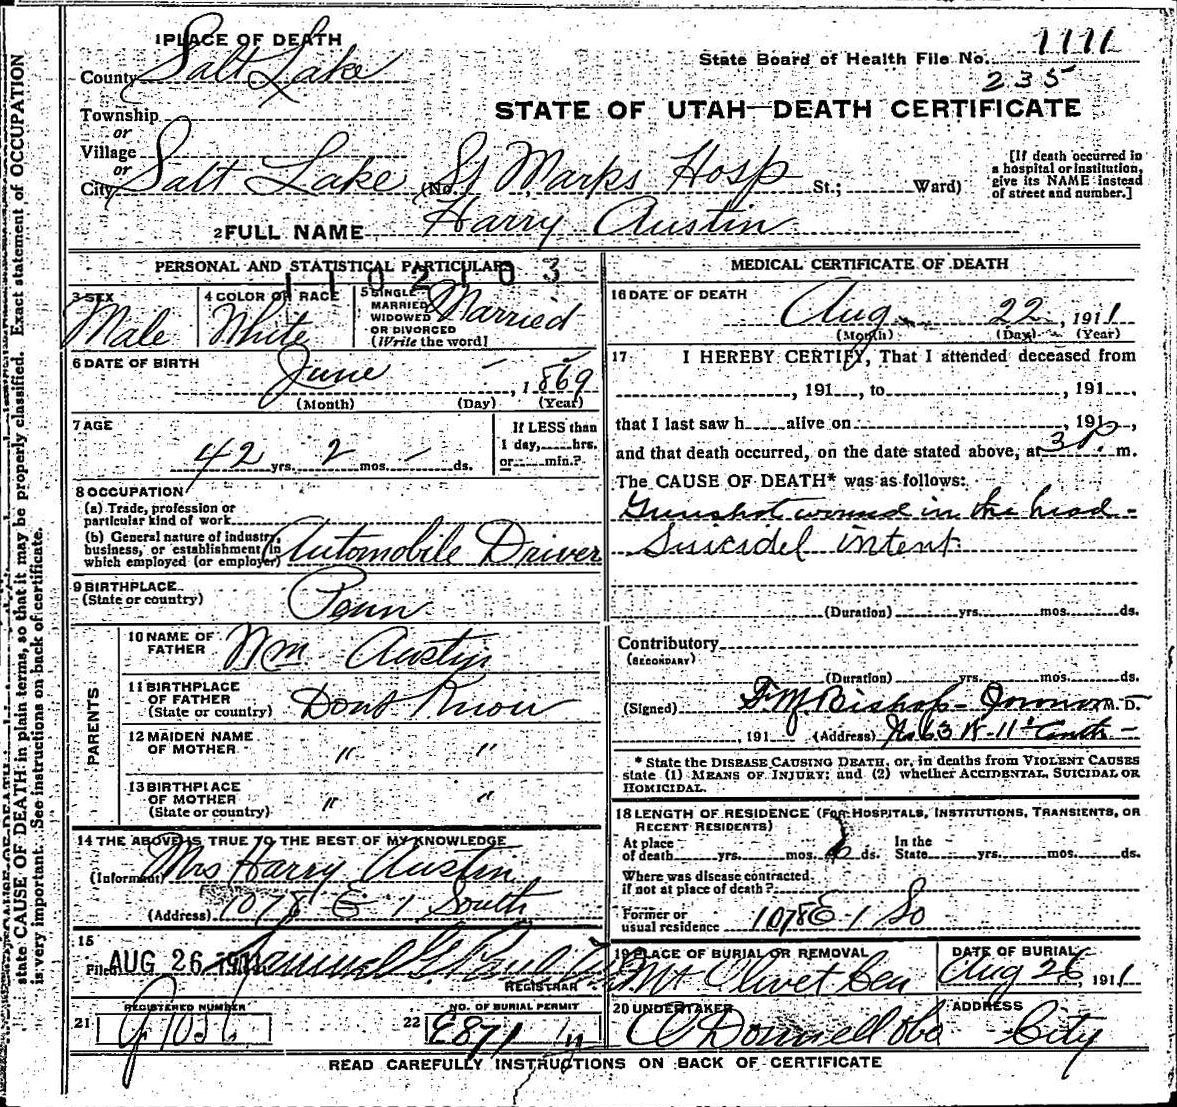 state CAUSE OF DEATH in plain terms, so that it may be properly classified. Exact statement of OCCUPATION
is very important. See instructions on back of certificate.
1 PLACE OF DEATH
County Salt Lake
Township
or
Village
or
City Salt Lake (No. St Marks Hosp St.; Ward)
State Board of Health File No. 1111
235
STATE OF UTAH—DEATH CERTIFICATE
[If death occurred in
a hospital or institution,
give its NAME instead
of street and number.]
2 FULL NAME Harry Austin
PERSONAL AND STATISTICAL PARTICULARS
1102103
3 SEX
Male
4 COLOR OR RACE
White
5 SINGLE
MARRIED
WIDOWED
OR DIVORCED
(Write the word)
Married
6 DATE OF BIRTH
June - , 1869
(Month) (Day) (Year)
7 AGE
42 yrs. 2 mos. - ds.
If LESS than
1 day, hrs.
or min.?
8 OCCUPATION
(a) Trade, profession or
particular kind of work
(b) General nature of industry,
business, or establishment in
which employed (or employer) Automobile Driver
9 BIRTHPLACE
(State or country) Penn
PARENTS
10 NAME OF
FATHER Wm Austin
11 BIRTHPLACE
OF FATHER
(State or country) Dont Know
12 MAIDEN NAME
OF MOTHER " "
13 BIRTHPLACE
OF MOTHER
(State or country) " "
14 THE ABOVE IS TRUE TO THE BEST OF MY KNOWLEDGE
(Informant) Mrs Harry Austin
(Address) 1078 E 1 South
15
Filed AUG 26 1911 Samuel G.
REGISTRAR
REGISTERED NUMBER
21
NO. OF BURIAL PERMIT
22 E871
MEDICAL CERTIFICATE OF DEATH
16 DATE OF DEATH
Aug 22, 1911
(Month) (Day) (Year)
17 I HEREBY CERTIFY, That I attended deceased from
, 191 , to , 191 ,
that I last saw h alive on , 191 ,
and that death occurred, on the date stated above, at 3 P. m.
The CAUSE OF DEATH* was as follows:
Gunshot wound in the head -
Suicidel intent.
(Duration) yrs. mos. ds.
Contributory
(SECONDARY)
(Duration) yrs. mos. ds.
(Signed) F. M. Bishop M. D.
, 191 (Address) No 63
* State the DISEASE CAUSING DEATH, or, in deaths from VIOLENT CAUSES
state (1) MEANS OF INJURY; and (2) whether ACCIDENTAL, SUICIDAL OR
HOMICIDAL.
18 LENGTH OF RESIDENCE (FOR HOSPITALS, INSTITUTIONS, TRANSIENTS, OR
RECENT RESIDENTS)
At place
of death yrs. mos. ds.
In the
State yrs. mos. ds.
Where was disease contracted
if not at place of death?
Former or
usual residence 1078 E - 1 So
19 PLACE OF BURIAL OR REMOVAL
Mt Olivet Cem
DATE OF BURIAL
Aug 26, 1911
20 UNDERTAKER
O Donnell
ADDRESS
City
READ CAREFULLY INSTRUCTIONS ON BACK OF CERTIFICATE